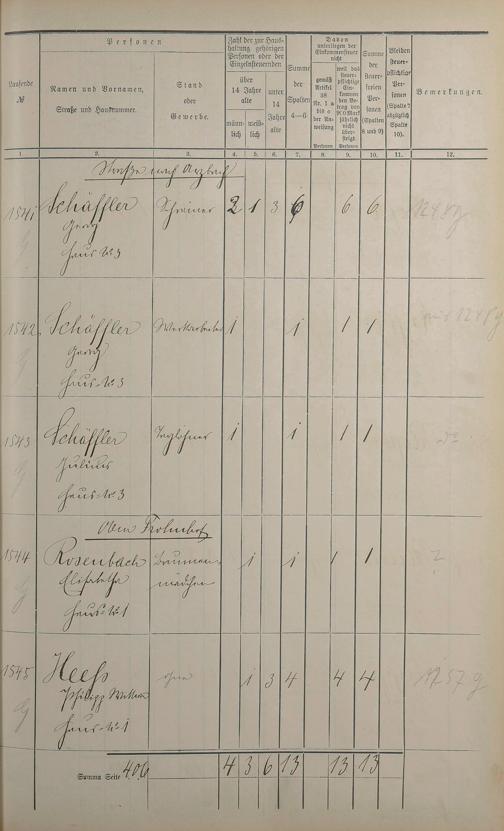 Personen
Zahl der zur Haus-
haltung gehörigen
Personen oder der
Einzelsteuernden
Davon
unterliegen der
Einkommensteuer
nicht
Laufende
№
Namen und Vornamen,
Straße und Hausnummer.
Stand
oder
Gewerbe.
über
14 Jahre
alte
männ-
lich
weib-
lich
unter
14
Jahre
alte
Summe
der
Spalten
4—6
gemäß
Artikel
18
Nr. 1 a
bis e
der An-
weisung
Personen
weil das
steuer-
pflichtige
Ein-
kommen
den Be-
trag von
900 Mark
jährlich
nicht
über-
steigt.
Personen
Summe
der
steuer-
freien
Per-
sonen
(Spalten
8 und 9)
Bleiben
steuer-
pflichtige
Per-
sonen
(Spalte 7
abzüglich
Spalte
10).
Bemerkungen.
1. 2. 3. 4. 5. 6. 7. 8. 9. 10. 11. 12.
Straße nach Arzbach
1541 Schäffler Schreiner 2 1 3 6 6 6
Georg
Haus № 3
1542 Schäffler 1 1 1 1
Georg
Haus № 3
1543 Schäffler Taglöhner 1 1 1 1
Julius
Haus № 3
1544 Rosenbach 1 1 1 1
Elisabetha mädchen
Haus № 1
1545 Heeß ohne 1 3 4 4 4
Philipp
Haus № 1
Summa Seite 406 4 3 6 13 13 13